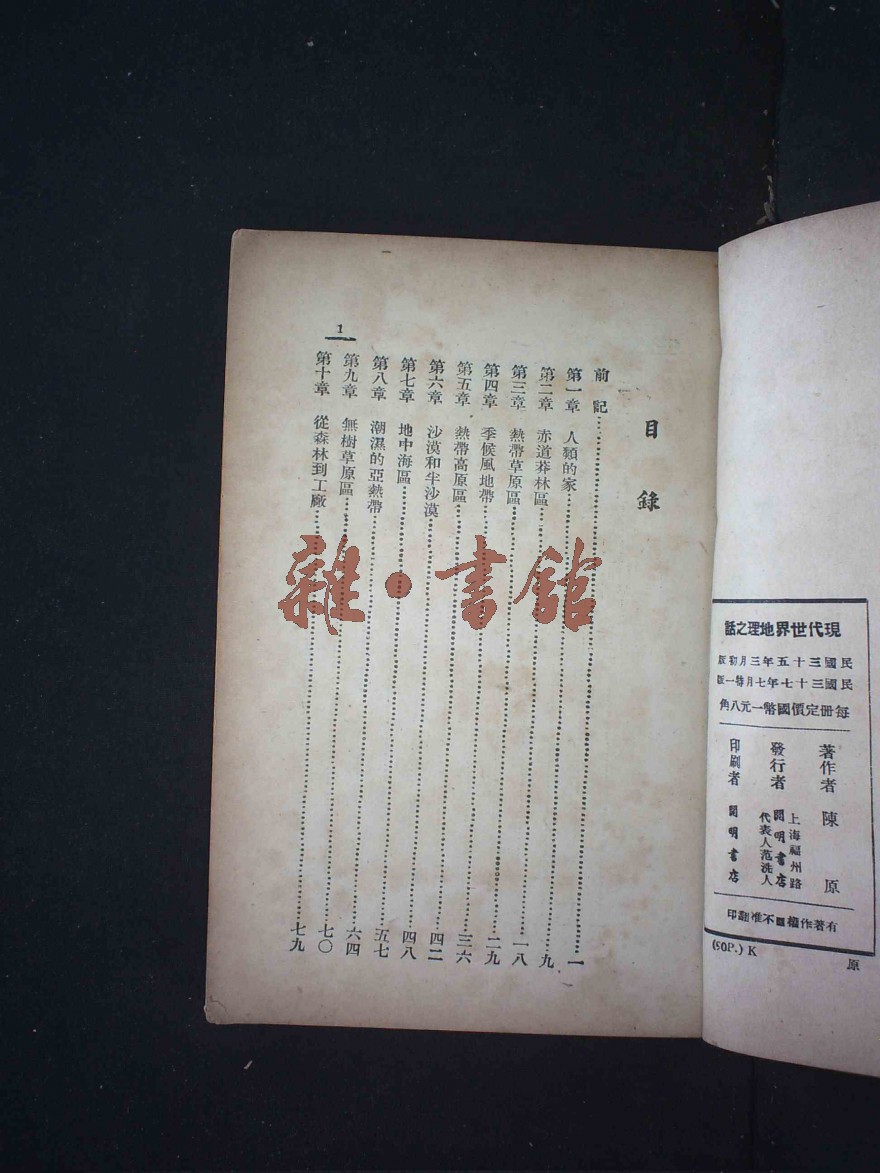 現代世界地理之話
民國三十五年三月初版
民國三十七年七月特一版
每冊定價國幣一元八角
著作者 陳原
發行者 開明書店
上海福州路
代表人范洗人
印刷者 開明書店
有著作權不准翻印
(50P.) K
原
目錄
前記……一
第一章 人類的家……九
第二章 赤道莽林區……一八
第三章 熱帶草原區……二九
第四章 季候風地帶……三六
第五章 熱帶高原區……四二
第六章 沙漠和半沙漠……四八
第七章 地中海區……五七
第八章 潮濕的亞熱帶……六四
第九章 無樹草原區……七〇
第十章 從森林到工廠……七九
1
雜·書館